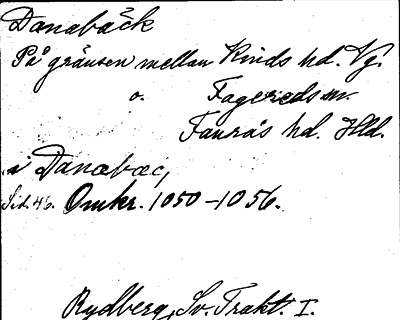 Danabäck
På gränsen mellan Kinds hd. Vg.
o. Fagereds sn.
Faurås hd. Hld.
i Danabæc,
Sid. 46. Omkr. 1050-1056.
Rydberg, Sv. Trakt. I.